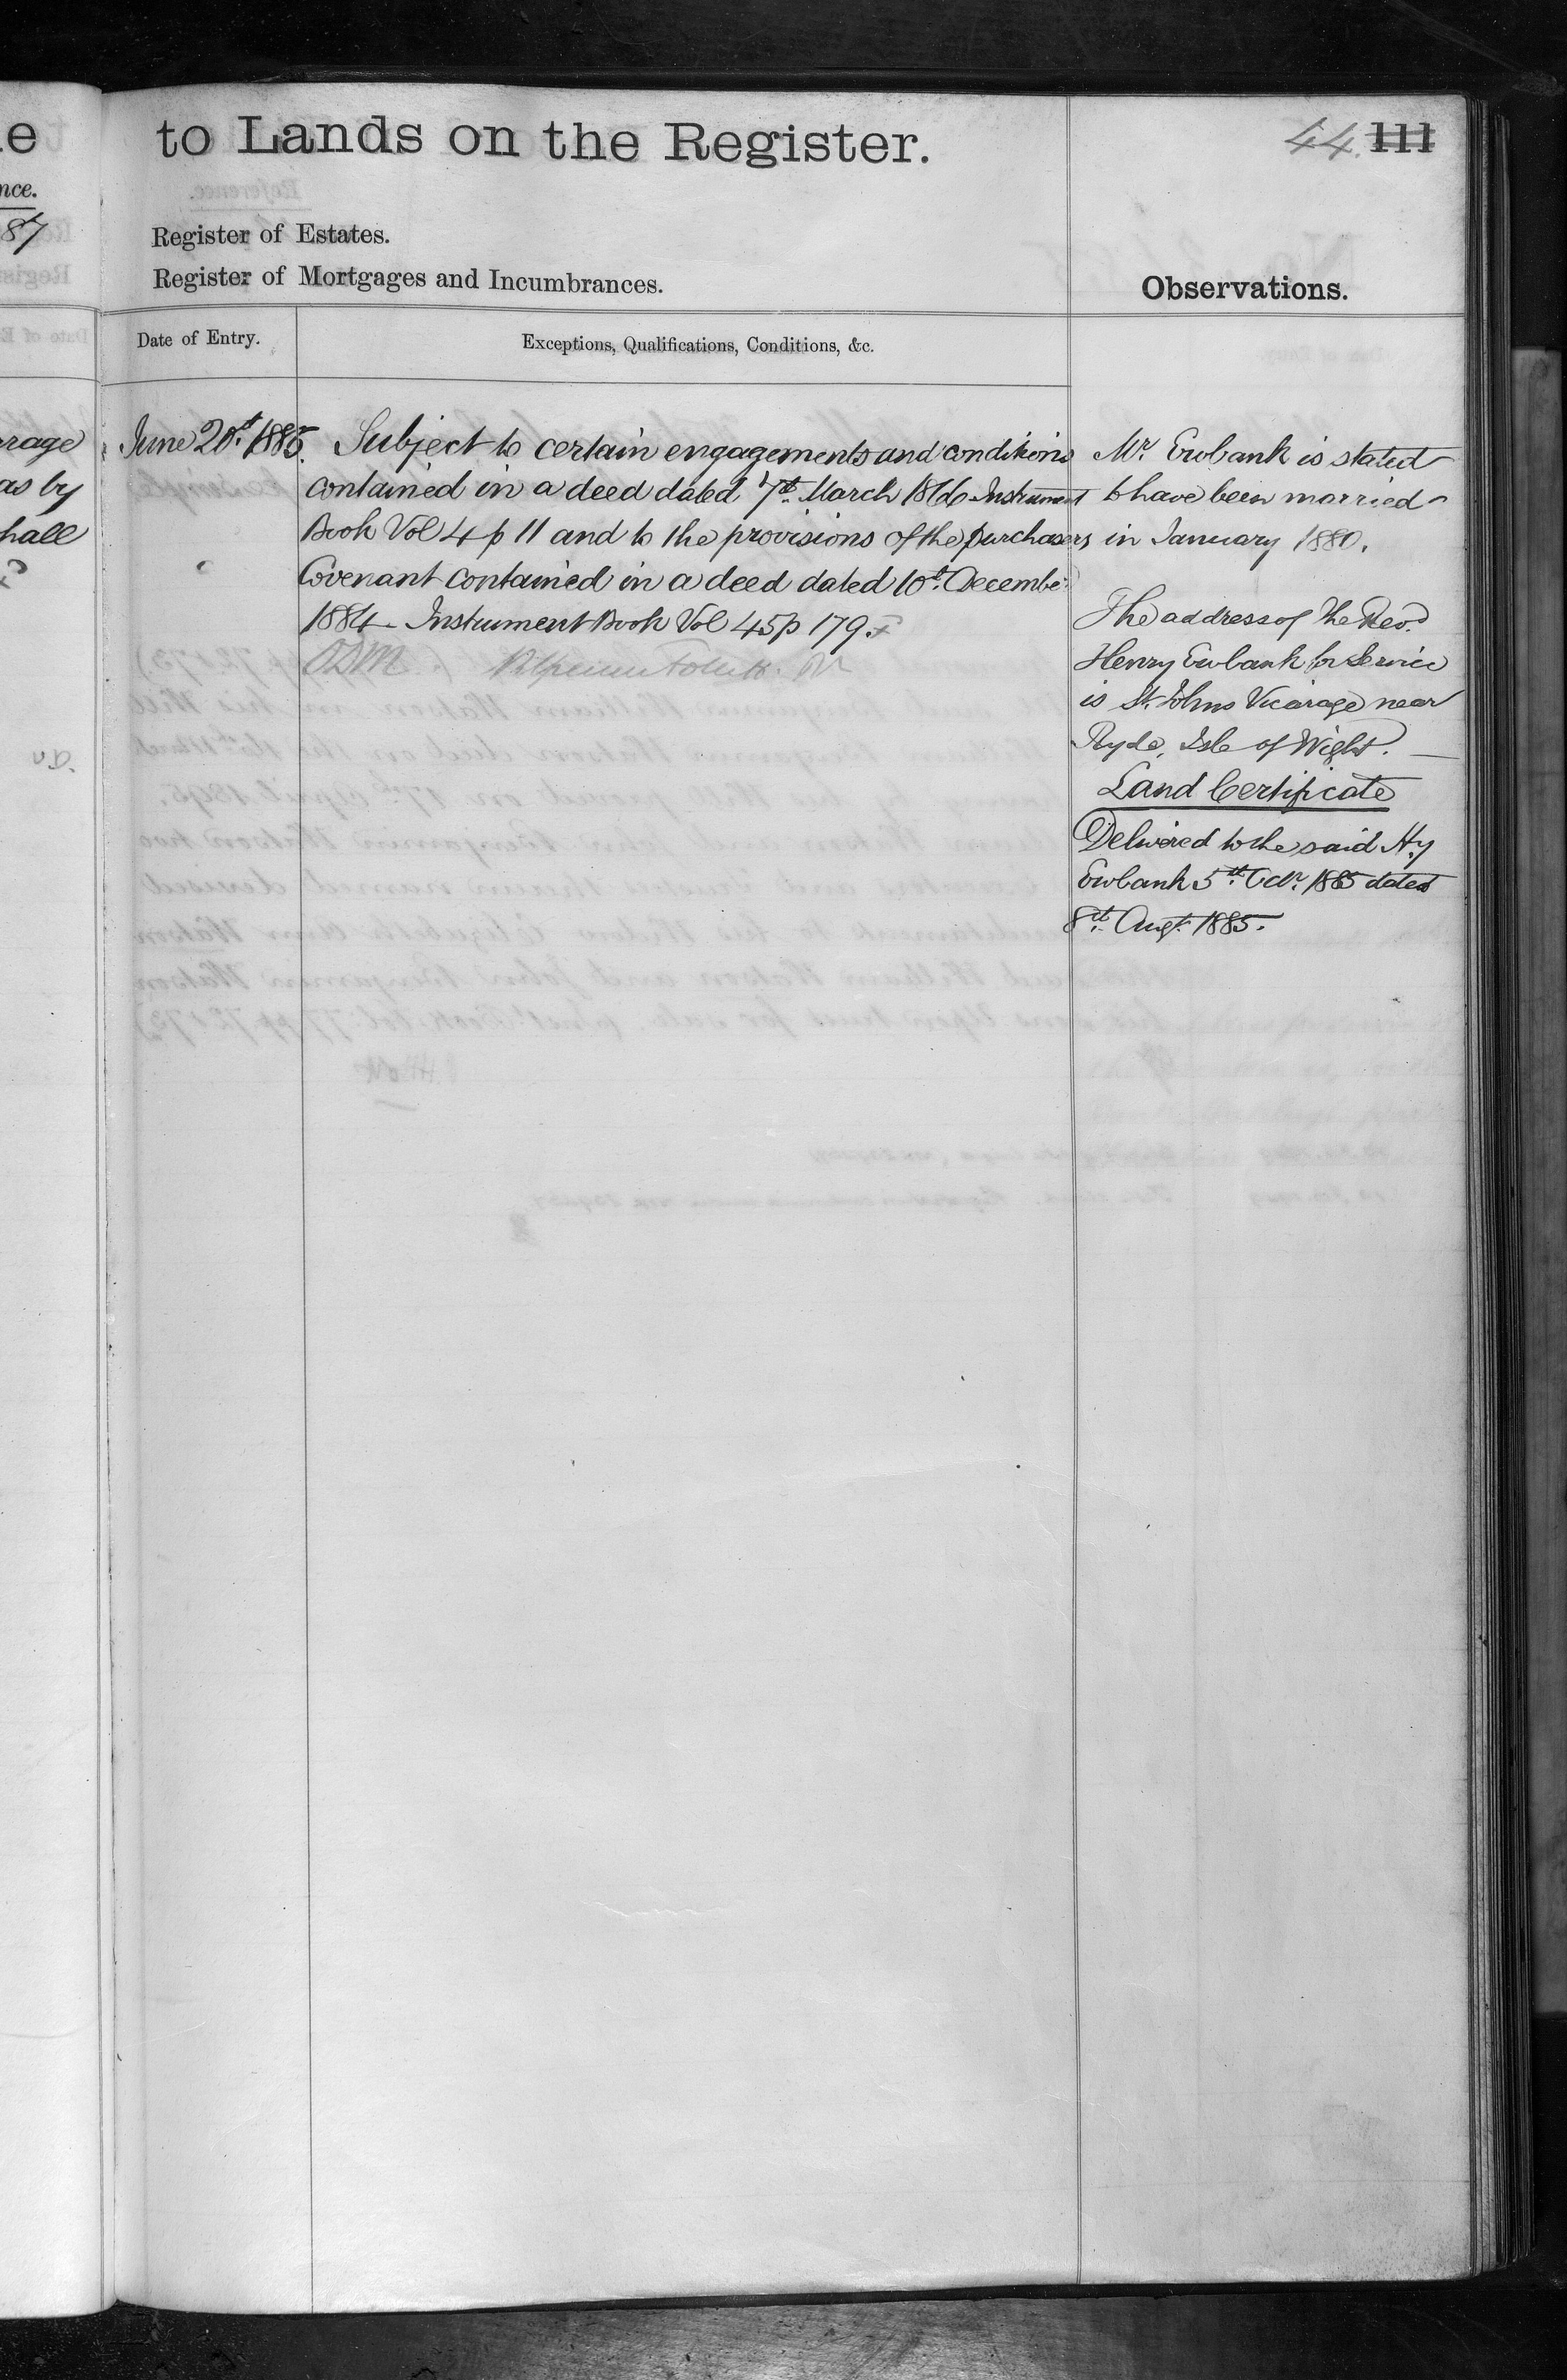 to Lands on the Register.
44. 111
nce.
87
Register of Estates.
Register of Mortgages and Incumbrances.
Observations.
Date of Entry.
Exceptions, Qualifications, Conditions, &c.
rage
as by
hall
June 20th 1885.
Subject to certain engagements and conditions
contained in a deed dated 7th March 1866 Instrument
Book Vol 4 p 11 and to the provisions of the purchasers
Covenant contained in a deed dated 10th Decembe
1884 - Instrument Book Vol 45 p 179.
ODM
Mr. Ewbank is stated
to have been married
in January 1880.
The address of the Revd.
Henry Ewbank for Service
is St. Johns Vicarage near
Ryde, Isle of Wight.
Land Certificate
Delivered to the said Hy
Ewbank 5th Octr. 1885 dated
8th Augt. 1885.